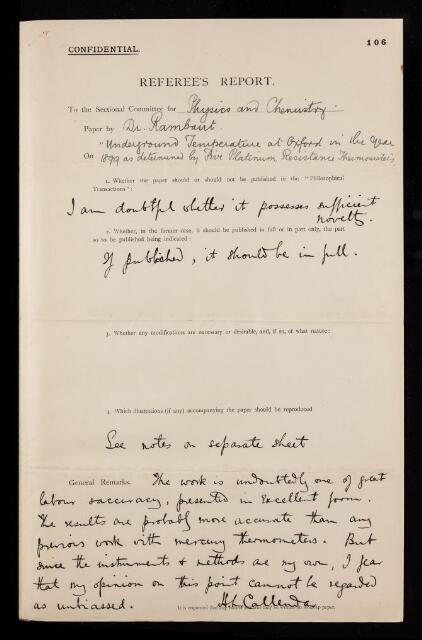 106
CONFIDENTIAL.
REFEREE'S REPORT.
To the Sectional Committee for Physics and Chemistry.
Paper by Dr. Rambaut.
"Underground Temperature at Oxford in the Year
On 1899 as determined by Five Platinum Resistance Thermometers
1. Whether the paper should or should not be published in the "Philosophical
Transactions":
I am doubtful whether it possesses sufficient
novelty.
2. Whether, in the former case, it should be published in full or in part only, the part
so to be published being indicated:
If published, it should be in full.
3. Whether any modifications are necessary or desirable, and, if so, of what nature:
4. Which illustrations (if any) accompanying the paper should be reproduced
See notes on separate sheet
General Remarks. The work is undoubtedly one of great
labour & accuracy, presented in excellent form.
The results are probably more accurate than any
previous work with mercury thermometers. But
since the instruments & methods are my own, I fear
that my opinion on this point cannot be regarded
as unbiassed. H L Callendar
It is requested that